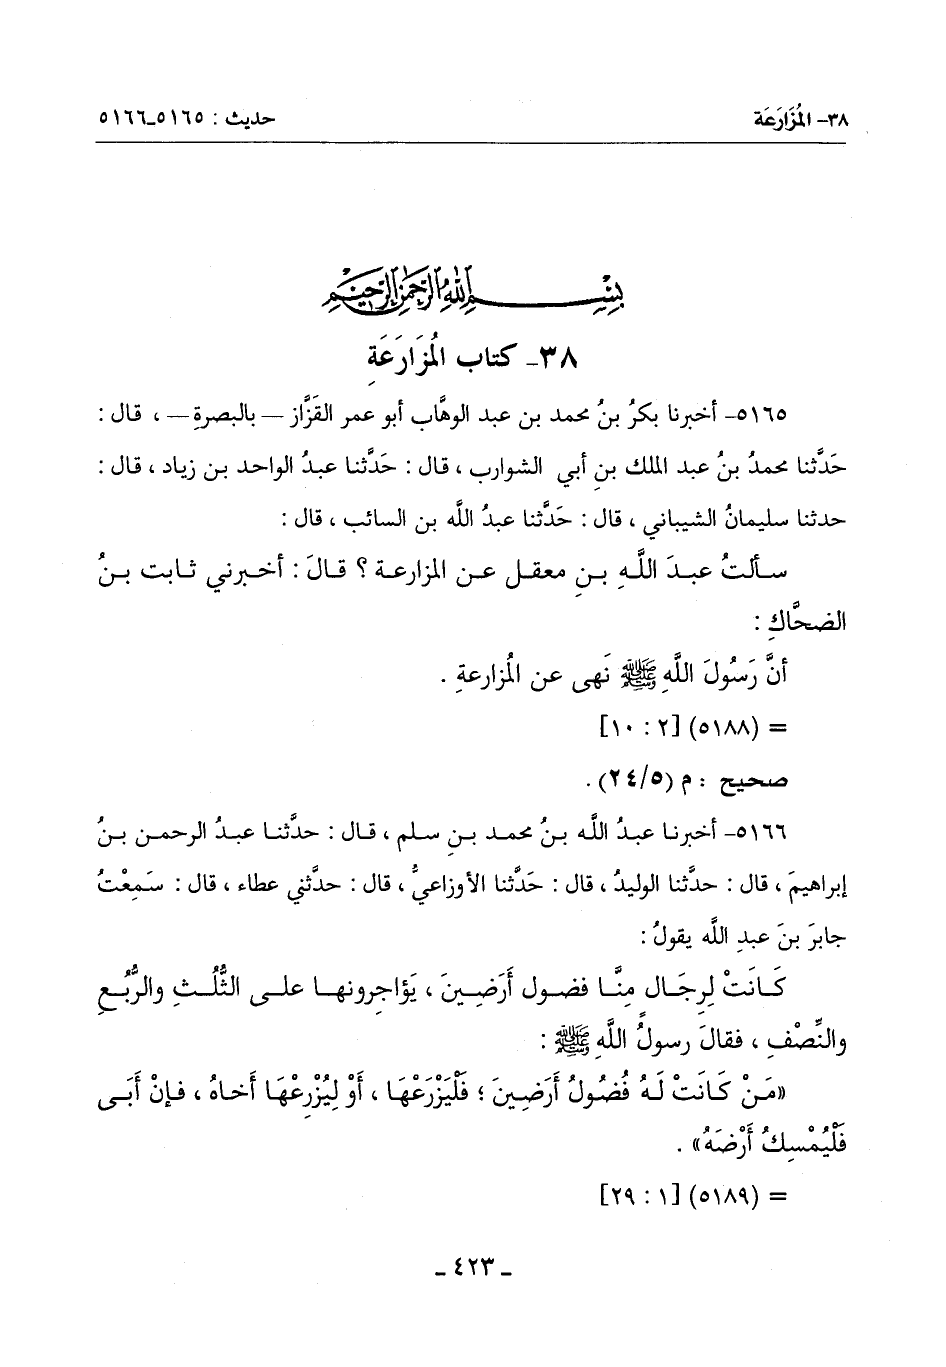 ٣٨- المُزَارَعَة
حديث : ٥١٦٥ـ٥١٦٦
بِسْمِ اللَّهِ الرَّحْمَنِ الرَّحِيمِ
٣٨- كتاب المُزَارَعَةِ
٥١٦٥- أخبرنا بكرُ بنُ محمد بن عبد الوهَّاب أبو عمر القَزَّاز — بالبصرةِ — ، قال :
حَدَّثنا محمدُ بنُ عبد الملك بنِ أبي الشوارب ، قال : حَدَّثنا عبدُ الواحد بن زياد ، قال :
حدثنا سليمانُ الشيباني ، قال : حَدَّثنا عبدُ الله بن السائب ، قال :
سألتُ عبدَ اللَّهِ بنِ معقل عن المزارعة ؟ قالَ : أخبرني ثابت بنُ
الضحَّاكِ :
أنَّ رَسُولَ اللَّهِ ﷺ نَهى عن المُزارعةِ .
= (٥١٨٨) [٢ : ١٠]
صحيح : م (٢٤/٥) .
٥١٦٦- أخبرنا عبدُ اللَّه بنُ محمد بنِ سلم ، قال : حدَّثنا عبدُ الرحمن بنُ
إبراهيمَ ، قال : حدَّثنا الوليدُ ، قال : حَدَّثنا الأوزاعيُّ ، قال : حدَّثني عطاء ، قال : سَمِعْتُ
جابرَ بنَ عبدِ اللَّه يقولُ :
كَانَتْ لِرِجَالٍ مِنَّا فضول أَرَضِينَ ، يَؤاجِرونها على الثُّلُثِ والرُّبُعِ
والنِّصْفِ ، فقالَ رسولُ اللَّهِ ﷺ :
«مَنْ كَانَتْ لَهُ فُضُولُ أَرَضِينَ ؛ فَلْيَزْرَعْهَا ، أَوْ لِيُزْرِعْهَا أخاهُ ، فإنْ أَبَى
فَلْيُمْسِكُ أَرْضَهُ» .
= (٥١٨٩) [١ : ٢٩]
ـ ٤٢٣ ـ